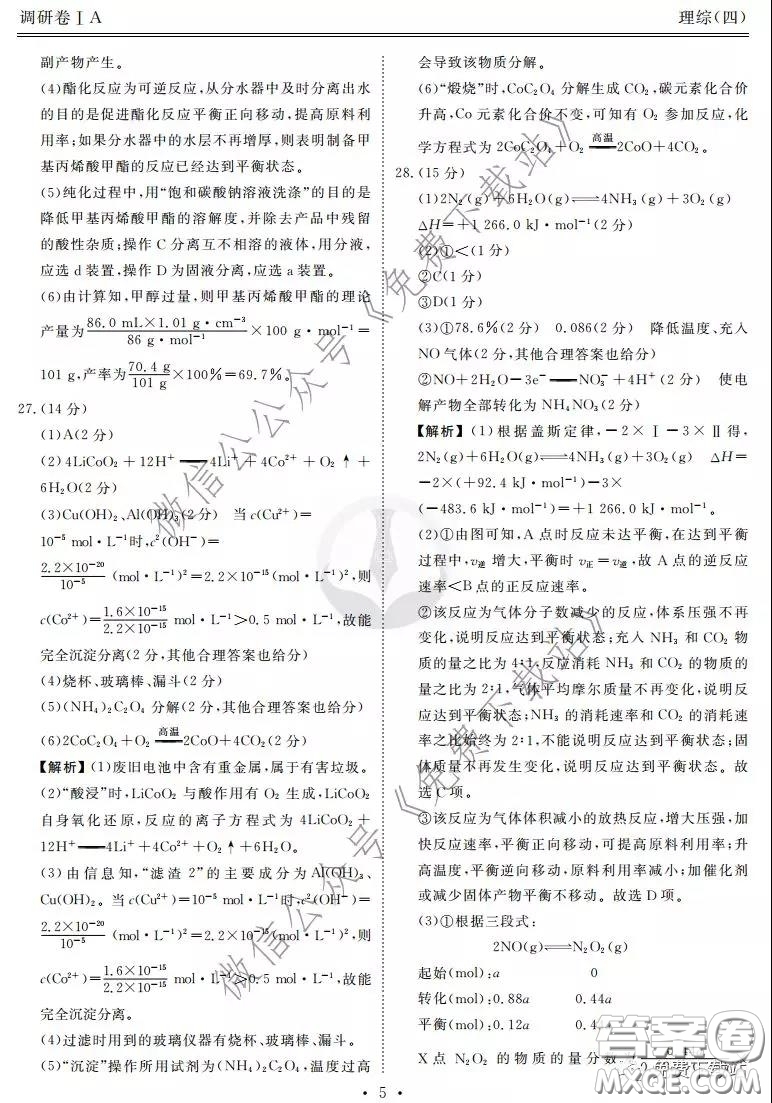 调研卷ⅠA
理综(四)
副产物产生。
(4)酯化反应为可逆反应,从分水器中及时分离出水
的目的是促进酯化反应平衡正向移动,提高原料利
用率;如果分水器中的水层不再增厚,则表明制备甲
基丙烯酸甲酯的反应已经达到平衡状态。
(5)纯化过程中,用“饱和碳酸钠溶液洗涤”的目的是
降低甲基丙烯酸甲酯的溶解度,并除去产品中残留
的酸性杂质;操作 C 分离互不相溶的液体,用分液,
应选 d 装置,操作 D 为固液分离,应选 a 装置。
(6)由计算知,甲醇过量,则甲基丙烯酸甲酯的理论
产量为86.0 mL×1.01 g·cm⁻³/86 g·mol⁻¹×100 g·mol⁻¹=
101 g,产率为70.4 g/101 g×100%=69.7%。
27.(14 分)
(1)A(2 分)
(2)4LiCoO₂+12H⁺══4Li⁺+4Co²⁺+O₂↑+
6H₂O(2 分)
(3)Cu(OH)₂、Al(OH)₃(2 分) 当 c(Cu²⁺)=
10⁻⁵ mol·L⁻¹时,c²(OH⁻)=
2.2×10⁻²⁰/10⁻⁵ (mol·L⁻¹)²=2.2×10⁻¹⁵(mol·L⁻¹)²,则
c(Co²⁺)=1.6×10⁻¹⁵/2.2×10⁻¹⁵ mol·L⁻¹>0.5 mol·L⁻¹,故能
完全沉淀分离(2 分,其他合理答案也给分)
(4)烧杯、玻璃棒、漏斗(2 分)
(5)(NH₄)₂C₂O₄ 分解(2 分,其他合理答案也给分)
(6)2CoC₂O₄+O₂══高温══2CoO+4CO₂(2 分)
【解析】(1)废旧电池中含有重金属,属于有害垃圾。
(2)“酸浸”时,LiCoO₂ 与酸作用有 O₂ 生成,LiCoO₂
自身氧化还原,反应的离子方程式为 4LiCoO₂+
12H⁺══4Li⁺+4Co²⁺+O₂↑+6H₂O。
(3)由信息知,“滤渣 2”的主要成分为 Al(OH)₃、
Cu(OH)₂。当 c(Cu²⁺)=10⁻⁵ mol·L⁻¹时,c²(OH⁻)=
2.2×10⁻²⁰/10⁻⁵ (mol·L⁻¹)²=2.2×10⁻¹⁵(mol·L⁻¹)²,则
c(Co²⁺)=1.6×10⁻¹⁵/2.2×10⁻¹⁵ mol·L⁻¹>0.5 mol·L⁻¹,故能
完全沉淀分离。
(4)过滤时用到的玻璃仪器有烧杯、玻璃棒、漏斗。
(5)“沉淀”操作所用试剂为(NH₄)₂C₂O₄,温度过高
会导致该物质分解。
(6)“煅烧”时,CoC₂O₄ 分解生成 CO₂,碳元素化合价
升高,Co 元素化合价不变,可知有 O₂ 参加反应,化
学方程式为 2CoC₂O₄+O₂══高温══2CoO+4CO₂。
28.(15 分)
(1)2N₂(g)+6H₂O(g)⇌4NH₃(g)+3O₂(g)
ΔH=+1 266.0 kJ·mol⁻¹(2 分)
(2)①<(1 分)
②C(1 分)
③D(1 分)
(3)①78.6%(2 分) 0.086(2 分) 降低温度、充入
NO 气体(2 分,其他合理答案也给分)
②NO+2H₂O−3e⁻══NO₃⁻+4H⁺(2 分) 使电
解产物全部转化为 NH₄NO₃(2 分)
【解析】(1)根据盖斯定律,−2×Ⅰ−3×Ⅱ得,
2N₂(g)+6H₂O(g)⇌4NH₃(g)+3O₂(g) ΔH=
−2×(+92.4 kJ·mol⁻¹)−3×
(−483.6 kJ·mol⁻¹)=+1 266.0 kJ·mol⁻¹。
(2)①由图可知,A 点时反应未达平衡,在达到平衡
过程中,v逆 增大,平衡时 v正=v逆,故 A 点的逆反应
速率<B 点的正反应速率。
②该反应为气体分子数减少的反应,体系压强不再
变化,说明反应达到平衡状态;充入 NH₃ 和 CO₂ 物
质的量之比为 4∶1,反应消耗 NH₃ 和 CO₂ 的物质的
量之比为 2∶1,气体平均摩尔质量不再变化,说明反
应达到平衡状态;NH₃ 的消耗速率和 CO₂ 的消耗速
率之比始终为 2∶1,不能说明反应达到平衡状态;固
体质量不再发生变化,说明反应达到平衡状态。故
选 C 项。
③该反应为气体体积减小的放热反应,增大压强,加
快反应速率,平衡正向移动,可提高原料利用率;升
高温度,平衡逆向移动,原料利用率减小;加催化剂
或减少固体产物平衡不移动。故选 D 项。
(3)①根据三段式:
2NO(g)⇌N₂O₂(g)
起始(mol):a 0
转化(mol):0.88a 0.44a
平衡(mol):0.12a
X 点 N₂O₂ 的物质的量分数
·5·
微信公众号《免费下载站》
微信公众号《免费下载站》
答案圈